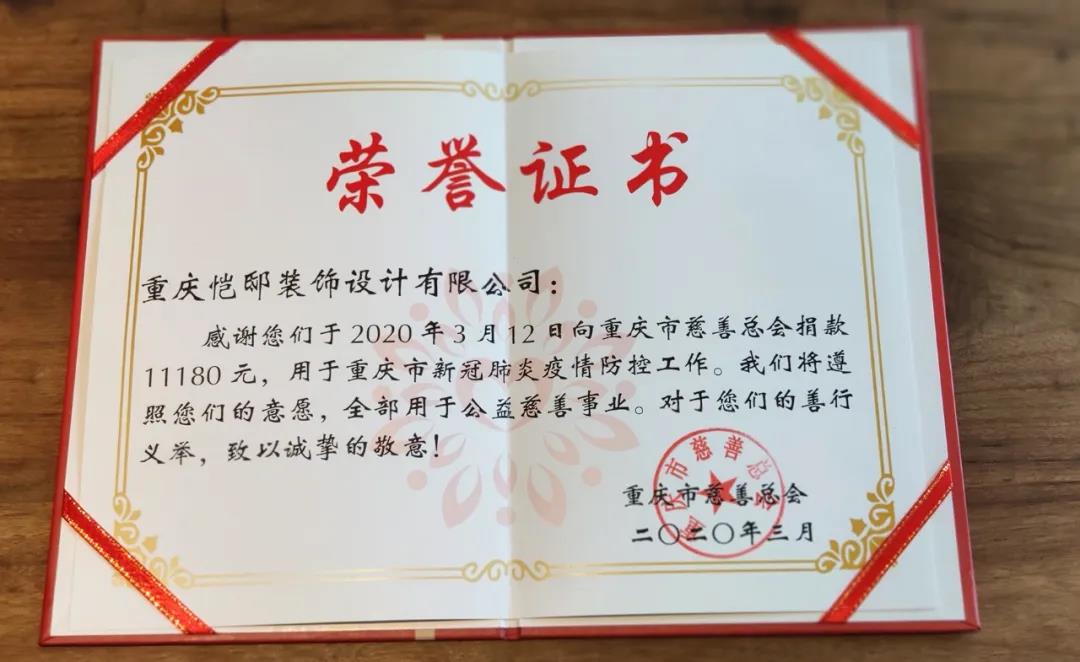 荣誉证书
重庆恺邸装饰设计有限公司：
感谢您们于 2020 年 3 月 12 日向重庆市慈善总会捐款
11180 元，用于重庆市新冠肺炎疫情防控工作。我们将遵
照您们的意愿，全部用于公益慈善事业。对于您们的善行
义举，致以诚挚的敬意！
重庆市慈善总会
重庆市慈善总会
二〇二〇年三月